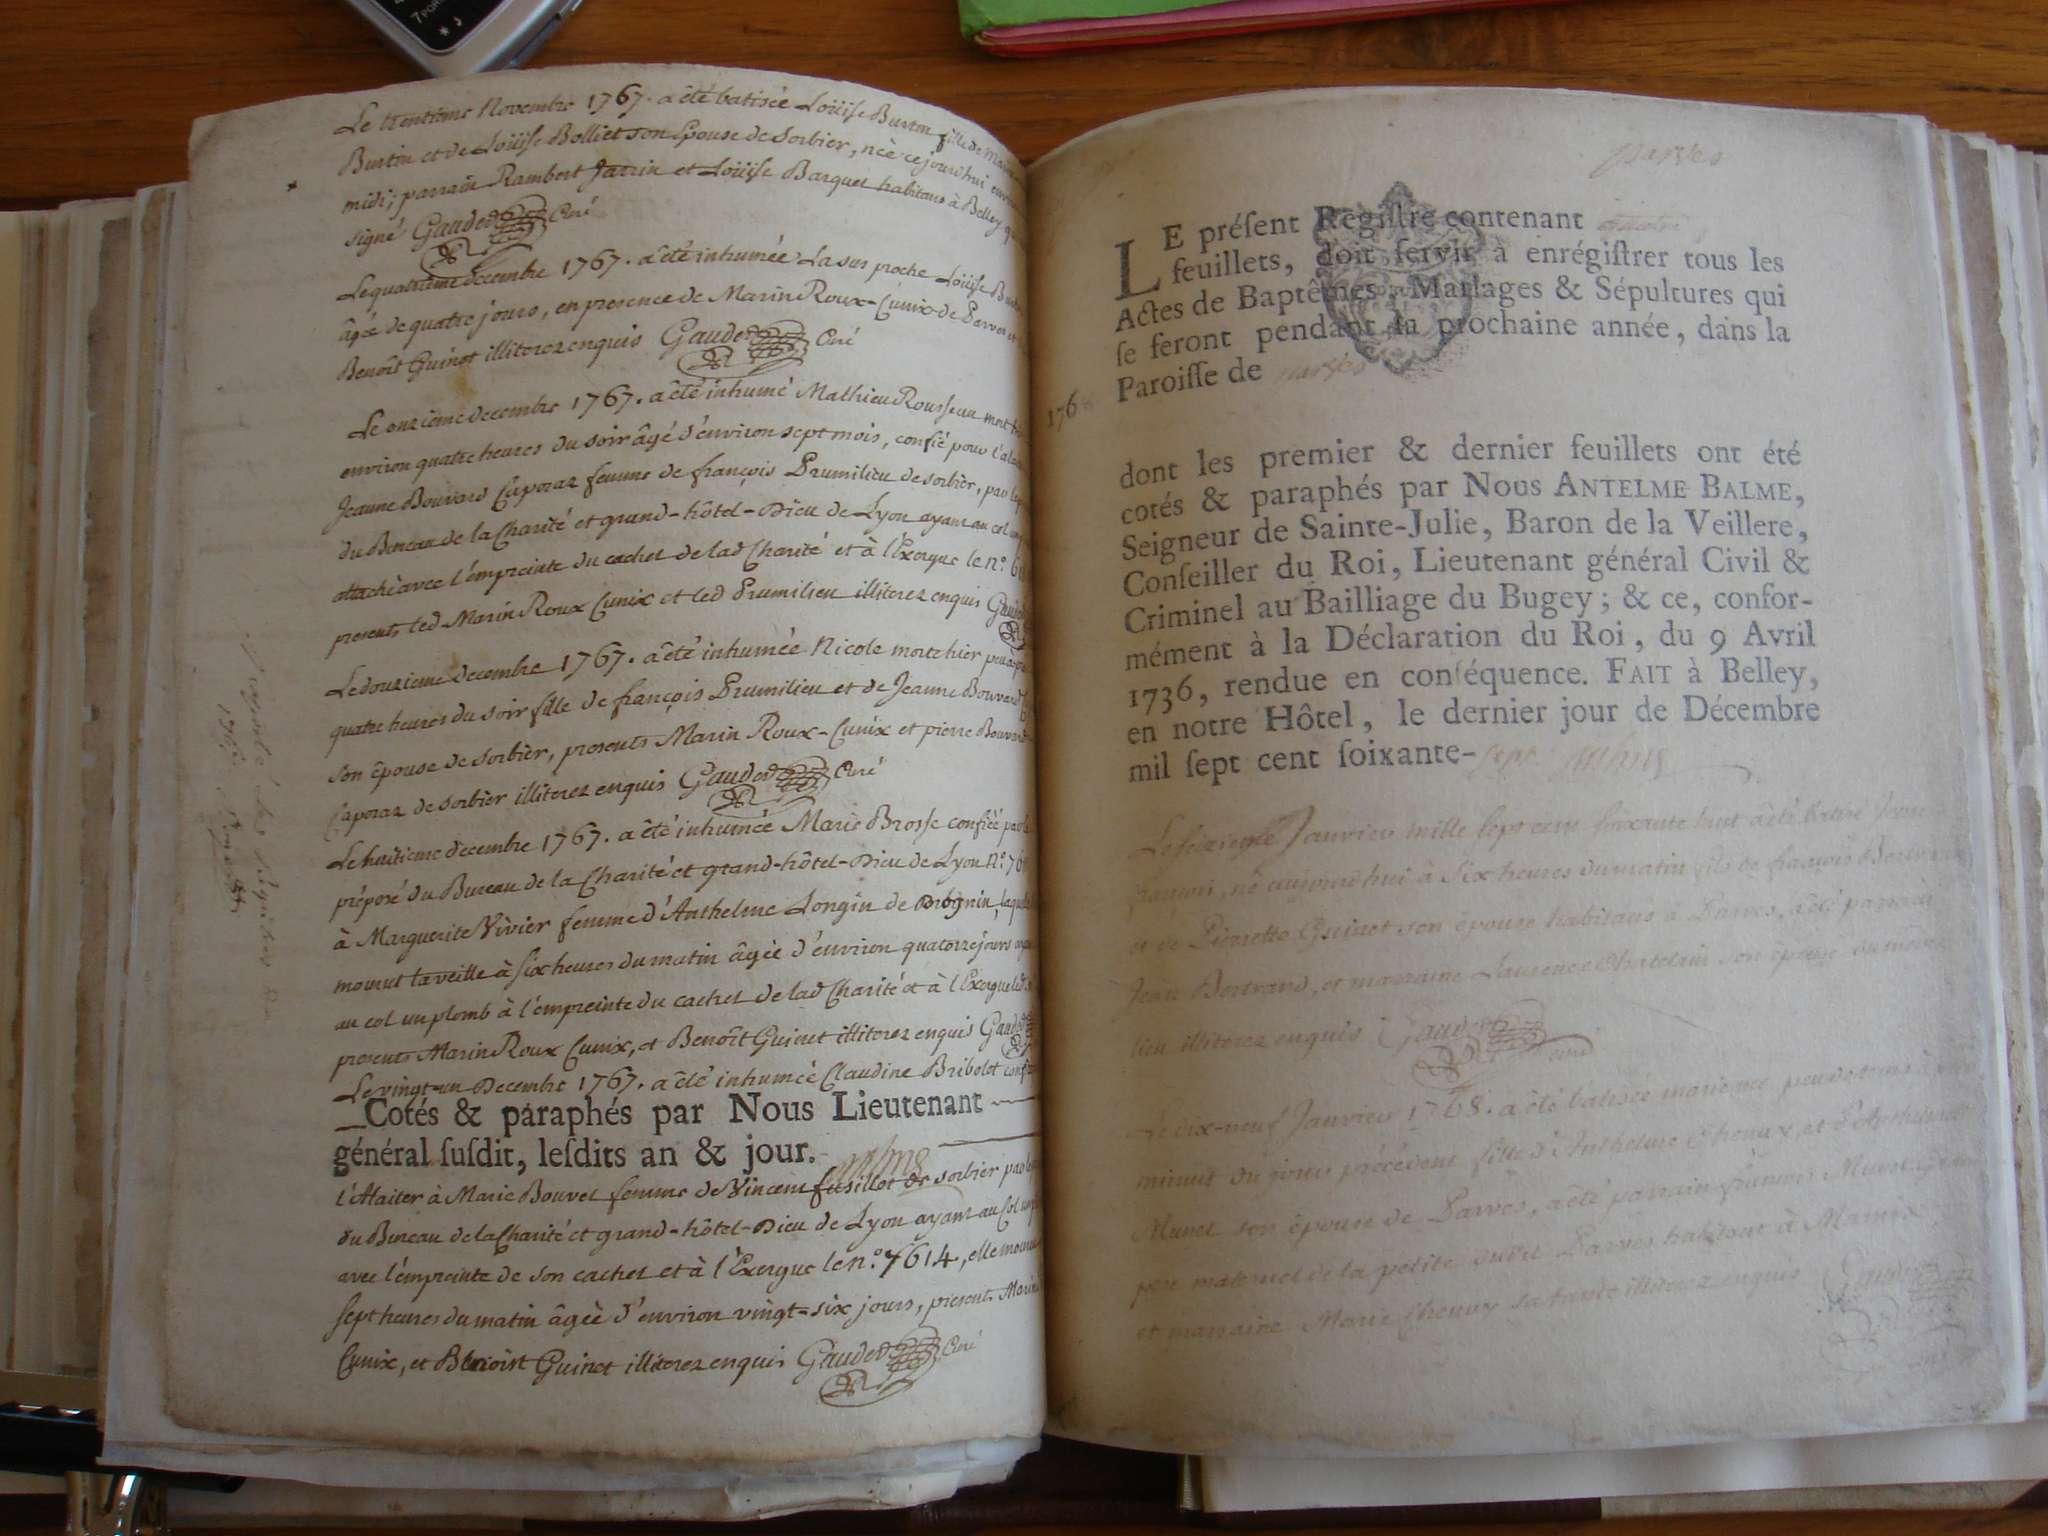 Le trentième Novembre 1767. a été batisée Loüise Burtin fille de
Burtin et de Loüise Bolliet son Epouse de Sorbier, née ce jourd'hui
midi; parrain Rambert Jarrin et Loüise Barquet habitans à Belley
signé Gauded Curé
Le quatrième decembre 1767. a été inhumée La sus proche Loüise
âgée de quatre jours, en presence de Marin Roux-Cunix de Parves et
Benoît Guinet illiterez enquis Gauded Curé
Le onzième decembre 1767. a été inhumé Mathieu Rousseau mort
environ quatre heures du soir âgé d'environ sept mois, confié pour
Jeanne Bouvard Caporaz femme de françois Prumilieu de sorbier, par
du Bureau de la Charité et grand-hôtel-Dieu de Lyon ayant au col
attaché avec l'empreinte du cachet de lad Charité et à l'Exergue le n.º
presents led Marin Roux Cunix et led Prumilieu illiterez enquis
Le douzieme decembre 1767. a été inhumée Nicole morte hier
quatre heures du soir fille de françois Prumilieu et de Jeanne Bouvard
son épouse de sorbier, presents Marin Roux-Cunix et pierre Bouvard
Caporaz de sorbier illiterez enquis Gauded Curé
Le huitieme decembre 1767. a été inhumée Marie Brosse confiée
préposé du Bureau de la Charité et grand-hôtel-Dieu de Lyon N.º
à Marguerite Vivier femme d'Anthelme Longin de
mourut la veille à six heures du matin âgée d'environ quatorze jours
au col un plomb à l'empreinte du cachet de lad Charité et à l'Exergue
presents Marin Roux Cunix, et Benoît Guinet illiterez enquis
Le vingt-un Decembre 1767. a été inhumée Claudine Bribolot
Cotés & paraphés par Nous Lieutenant
général susdit, lesdits an & jour.
l'Alaiter à Marie Bouvet femme de Vincent fusillet de sorbier
du Bureau de la Charité et grand-hôtel-Dieu de Lyon ayant au Col
avec l'empreinte de son cachet et à l'Exergue le n.º 7614, elle
sept heures du matin âgée d'environ vingt-six jours, presents
Cunix, et Benoist Guinet illiterez enquis Gauded Curé
parves
LE présent Regiſtre contenant
feuillets, doit ſervir à enrégiſtrer tous les
Actes de Baptêmes, Mariages & Sépultures qui
ſe feront pendant la prochaine année, dans la
Paroiſſe de parves
1768
dont les premier & dernier feuillets ont été
cotés & paraphés par Nous ANTELME BALME,
Seigneur de Sainte-Julie, Baron de la Veillere,
Conſeiller du Roi, Lieutenant général Civil &
Criminel au Bailliage du Bugey; & ce, confor-
mément à la Déclaration du Roi, du 9 Avril
1736, rendue en conſéquence. FAIT à Belley,
en notre Hôtel, le dernier jour de Décembre
mil ſept cent ſoixante-sept
Janvier mille sept cent soixante huit a été batisé
né aujourd'hui à six heures du matin fils de françois Bertrand
et de Pierrette Guinet son épouse habitans à Parves, a été parrain
Jean Bertrand, et marraine Laurence Chatelain son épouse du même
lieu illiterez enquis Gauded curé
Le dix-neuf Janvier 1768. a été batisée
minuit du jour précédent fille d'Anthelme
Muret son épouse de Parves, a été parrain françois Muret
pere maternel de la petite dudit Parves habitant à
et marraine Marie sa tante illiterez enquis Gauded